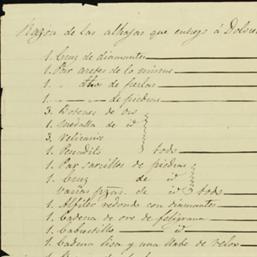 Razon de las alhajas que entrego á Dolores
1. Cruz de diamantes
1. Par aretes de lo mismo
1. " otro de perlas
1. — — — de piedras
3. Botones de oro
1. Medalla de id
3. Relicario
1. Pendiito todo
1. Par zarcillos de piedras
1. Cruz de id
varias pzas. de id todo
1. Alfiler redondo con diamantes
1. Cadena de oro de filigrana
1. Cabrestillo id
1. Cadena lisa y una llave de relox